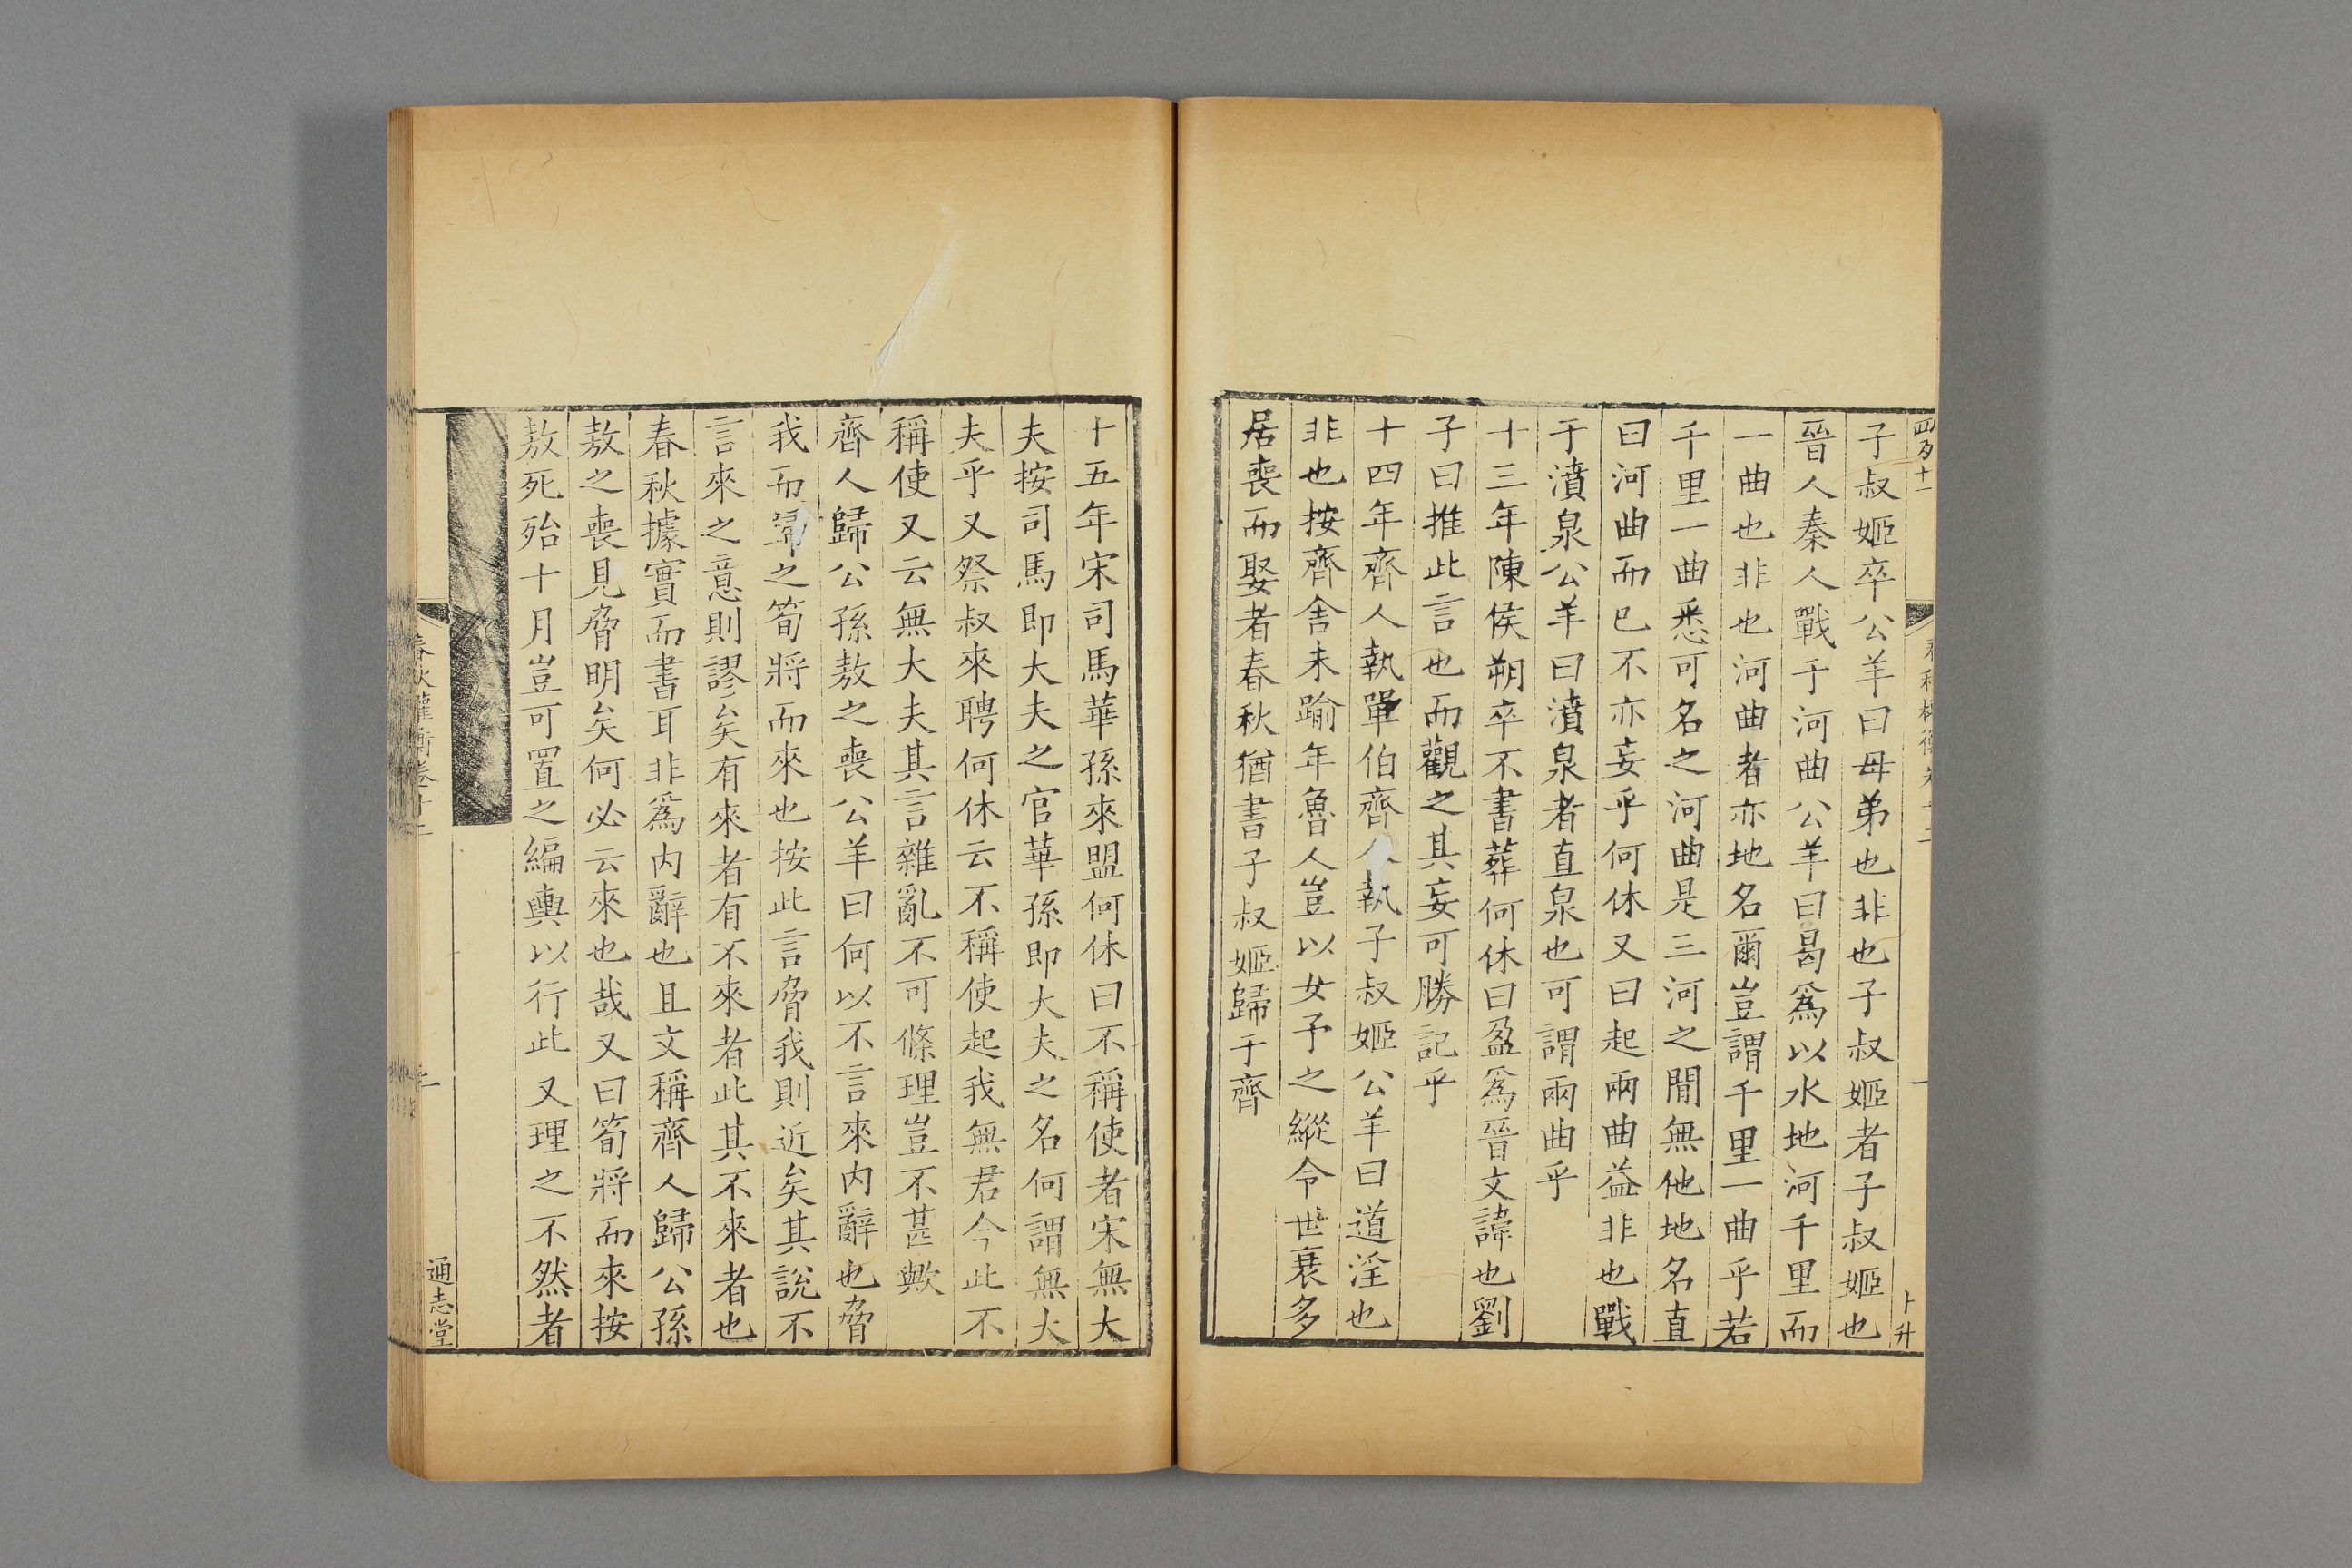 子叔姬卒公羊曰母弟也非也子叔姬者子叔姬也
晉人秦人戰于河曲公羊曰曷爲以水地河千里而
一曲也非也河曲者亦地名爾豈謂千里一曲乎若
千里一曲悉可名之河曲是三河之間無他地名直
曰河曲而已不亦妄乎何休又曰起兩曲益非也戰
于濆泉公羊曰濆泉者直泉也可謂兩曲乎
十三年陳侯朔卒不書葬何休曰盈爲晉文諱也劉
子曰推此言也而觀之其妄可勝記乎
十四年齊人執單伯齊人執子叔姬公羊曰道淫也
非也按齊舍未踰年魯人豈以女予之縱令世衰多
居喪而娶者春秋猶書子叔姬歸于齊
卜升
十五年宋司馬華孫來盟何休曰不稱使者宋無大
夫按司馬即大夫之官華孫即大夫之名何謂無大
夫乎又祭叔來聘何休云不稱使起我無君今此不
稱使又云無大夫其言雜亂不可條理豈不甚歟
齊人歸公孫敖之喪公羊曰何以不言來内辭也脅
我而歸之筍將而來也按此言脅我則近矣其說不
言來之意則謬矣有來者有不來者此其不來者也
春秋據實而書耳非爲内辭也且文稱齊人歸公孫
敖之喪見脅明矣何必云來也哉又曰筍將而來按
敖死殆十月豈可置之編輿以行此又理之不然者
春秋權衡卷十二
二
通志堂